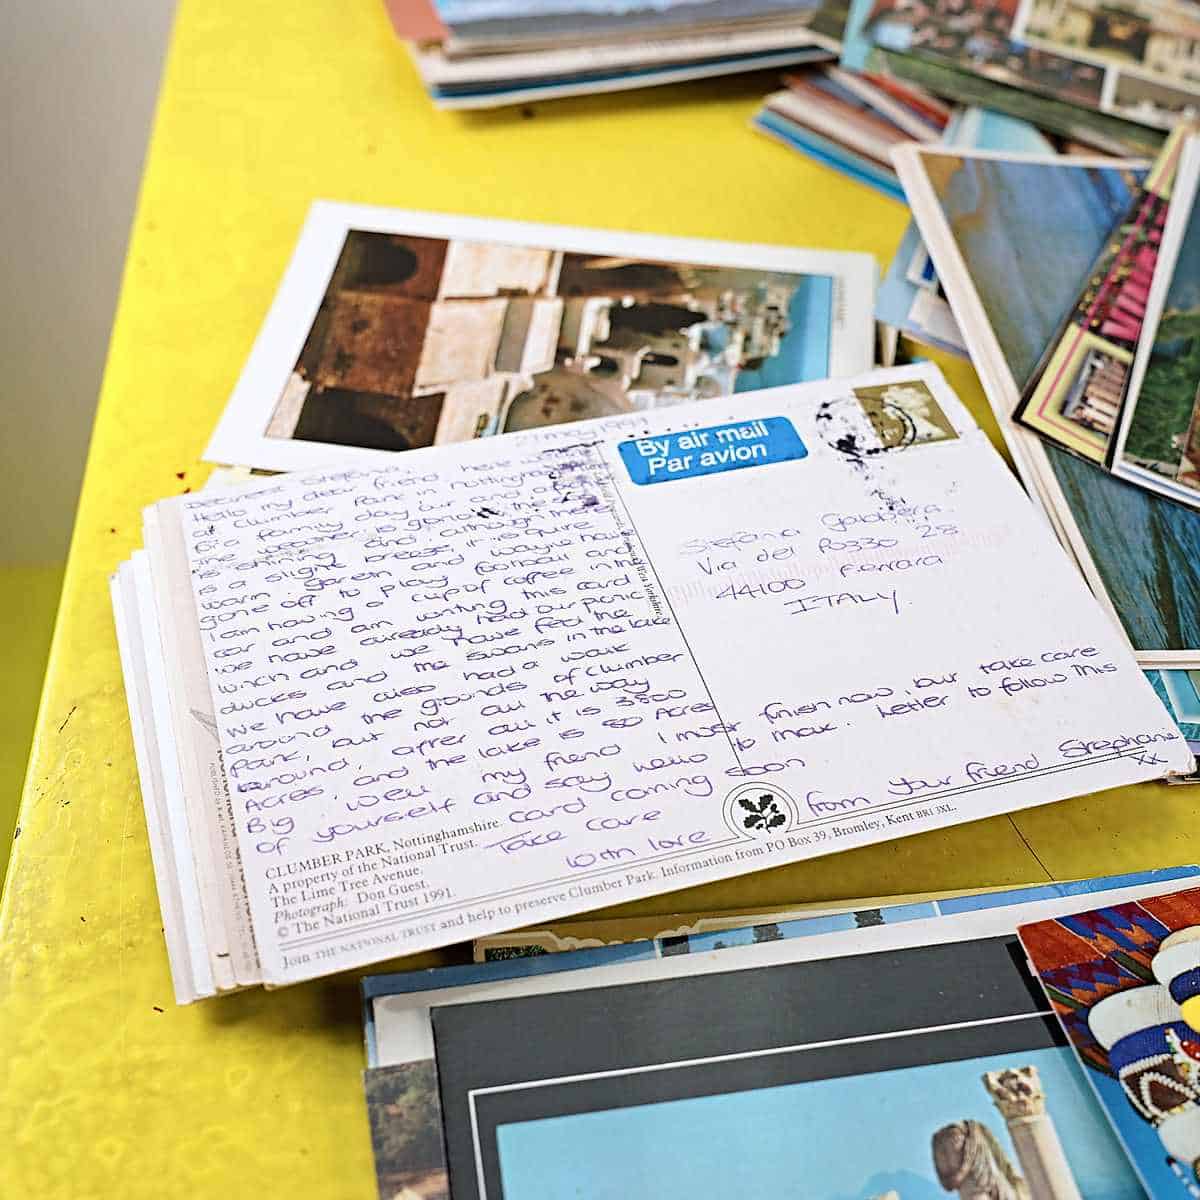 27 May 1994
Dearest Stefania, Here
Hello my dear friend
at Clumber Park in Nottingham
for a family day out and
the weather is gorgeous the sun
is shining and although there
is a slight breeze, it is quite
warm. Gareth and Wayne have
gone off to play football and
I am having a cup of coffee in the
car and am writing this card
we have already had our picnic
lunch and we have feed the
ducks and the swans in the lake
We have also had a walk
around the grounds of Clumber
Park, but not all the way
around, after all it is 3800
Acres and the lake is 80 Acres
Big. Well my friend I must finish now, but take care
of yourself and say hello to Max. Letter to follow this
card coming soon
Take care
With love from your friend Stephanie
xx
By air mail
Par avion
Stefania
Via del Pozzo 28
44100 Ferrara
ITALY.
CLUMBER PARK, Nottinghamshire.
A property of the National Trust.
The Lime Tree Avenue.
Photograph: Don Guest.
© The National Trust 1991.
Join THE NATIONAL TRUST and help to preserve Clumber Park. Information from PO Box 39, Bromley, Kent BR1 3XL.